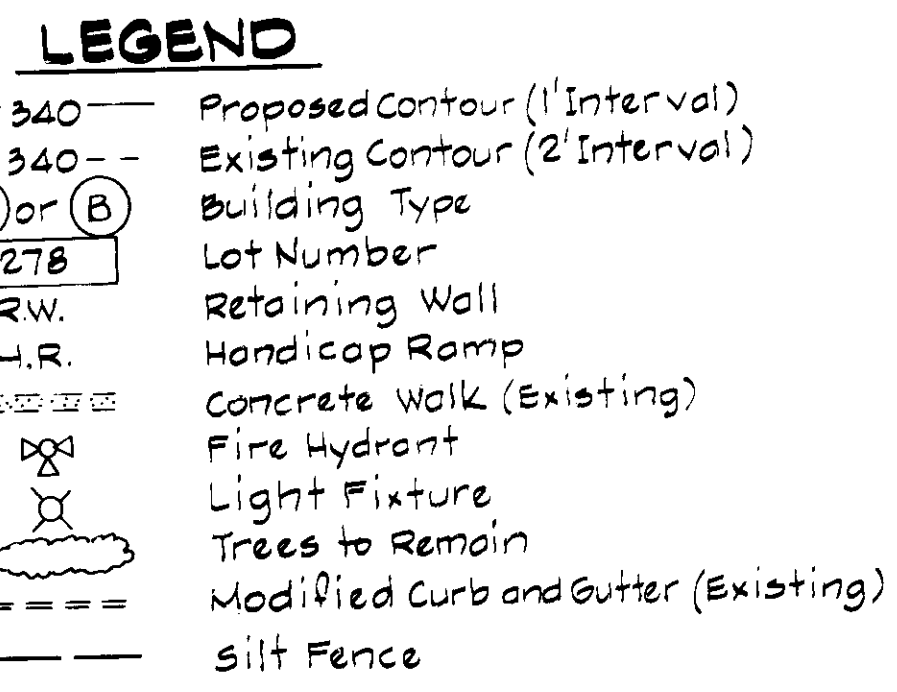 LEGEND
340 Proposed Contour (1' Interval)
340 Existing Contour (2' Interval)
or B Building Type
278 Lot Number
R.W. Retaining Wall
H.R. Handicap Ramp
Concrete Walk (Existing)
Fire Hydrant
Light Fixture
Trees to Remain
Modified Curb and Gutter (Existing)
Silt Fence